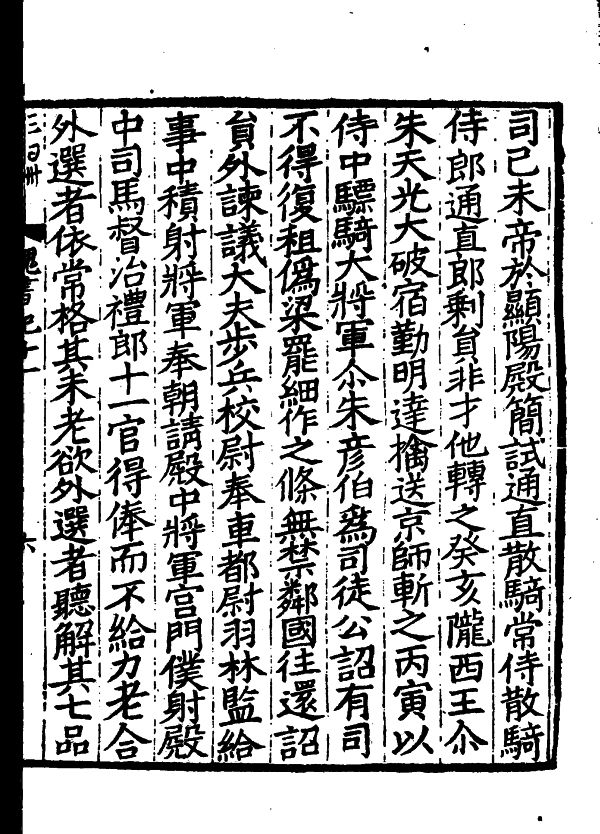 司己未帝於顯陽殿簡試通直散騎常侍散騎
侍郎通直郎剩貟非才他轉之癸亥隴西王尒
朱天光大破宿勤明達擒送京師斬之丙寅以
侍中驃騎大將軍尒朱彦伯爲司徒公詔有司
不得復租僞梁罷細作之條無禁鄰國往還詔
貟外諫議大夫步兵校尉奉車都尉羽林監給
事中積射將軍奉朝請殿中將軍宫門僕射殿
中司馬督治禮郎十一官得俸而不給力老合
外選者依常格其未老欲外選者聽解其七品
魏書紀十一
六